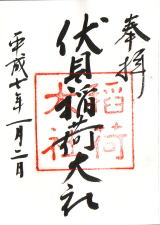 奉拝
伏見稲荷大社
稲荷
本社
平成七年一月二日